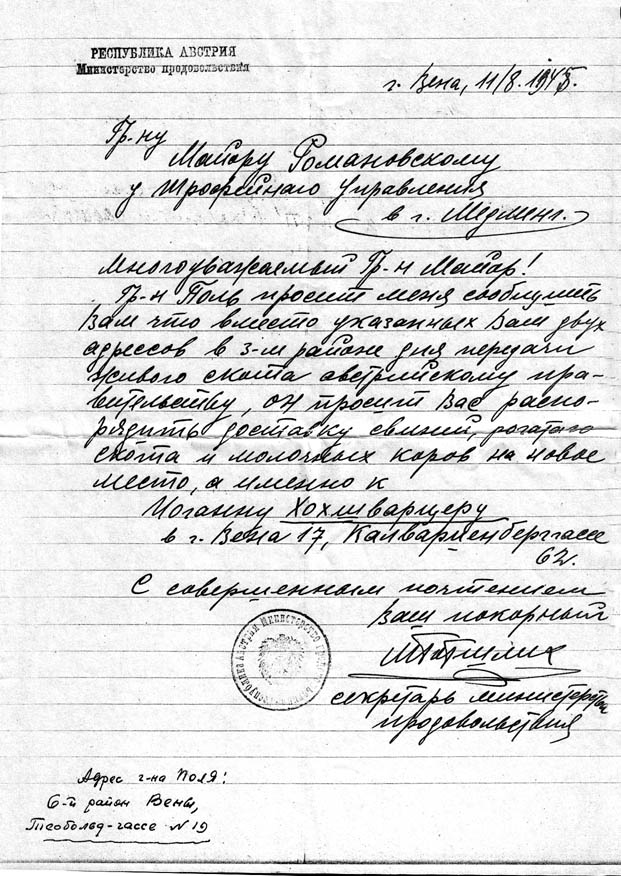 РЕСПУБЛИКА АВСТРИЯ
Министерство продовольствия
г. Вена, 11/8. 1945.
Гр-ну
Майору Романовскому
у Трофейнаго Управления
в г. Медлинг.
Многоуважаемый Гр-н Майор!
Гр-н Поль просит меня сообщить
Вам что вместо указанных Вам двух
адрессов в 3-м районе для передачи
живого скота австрийскому пра-
вительству, он просит Вас распо-
рядить доставку свиней, рогатаго
скота и молочных коров на новое
место, а именно к
Иоганну Хохшварцеру
в г. Вена 17, Калвариенберггассе
62.
С совершенным почтением
Ваш покорный
секретарь министерства
продовольствия
Республика Австрия Министерство
Адрес г-на Поля:
6-й район Вены,
Теобольд-гассе N 19